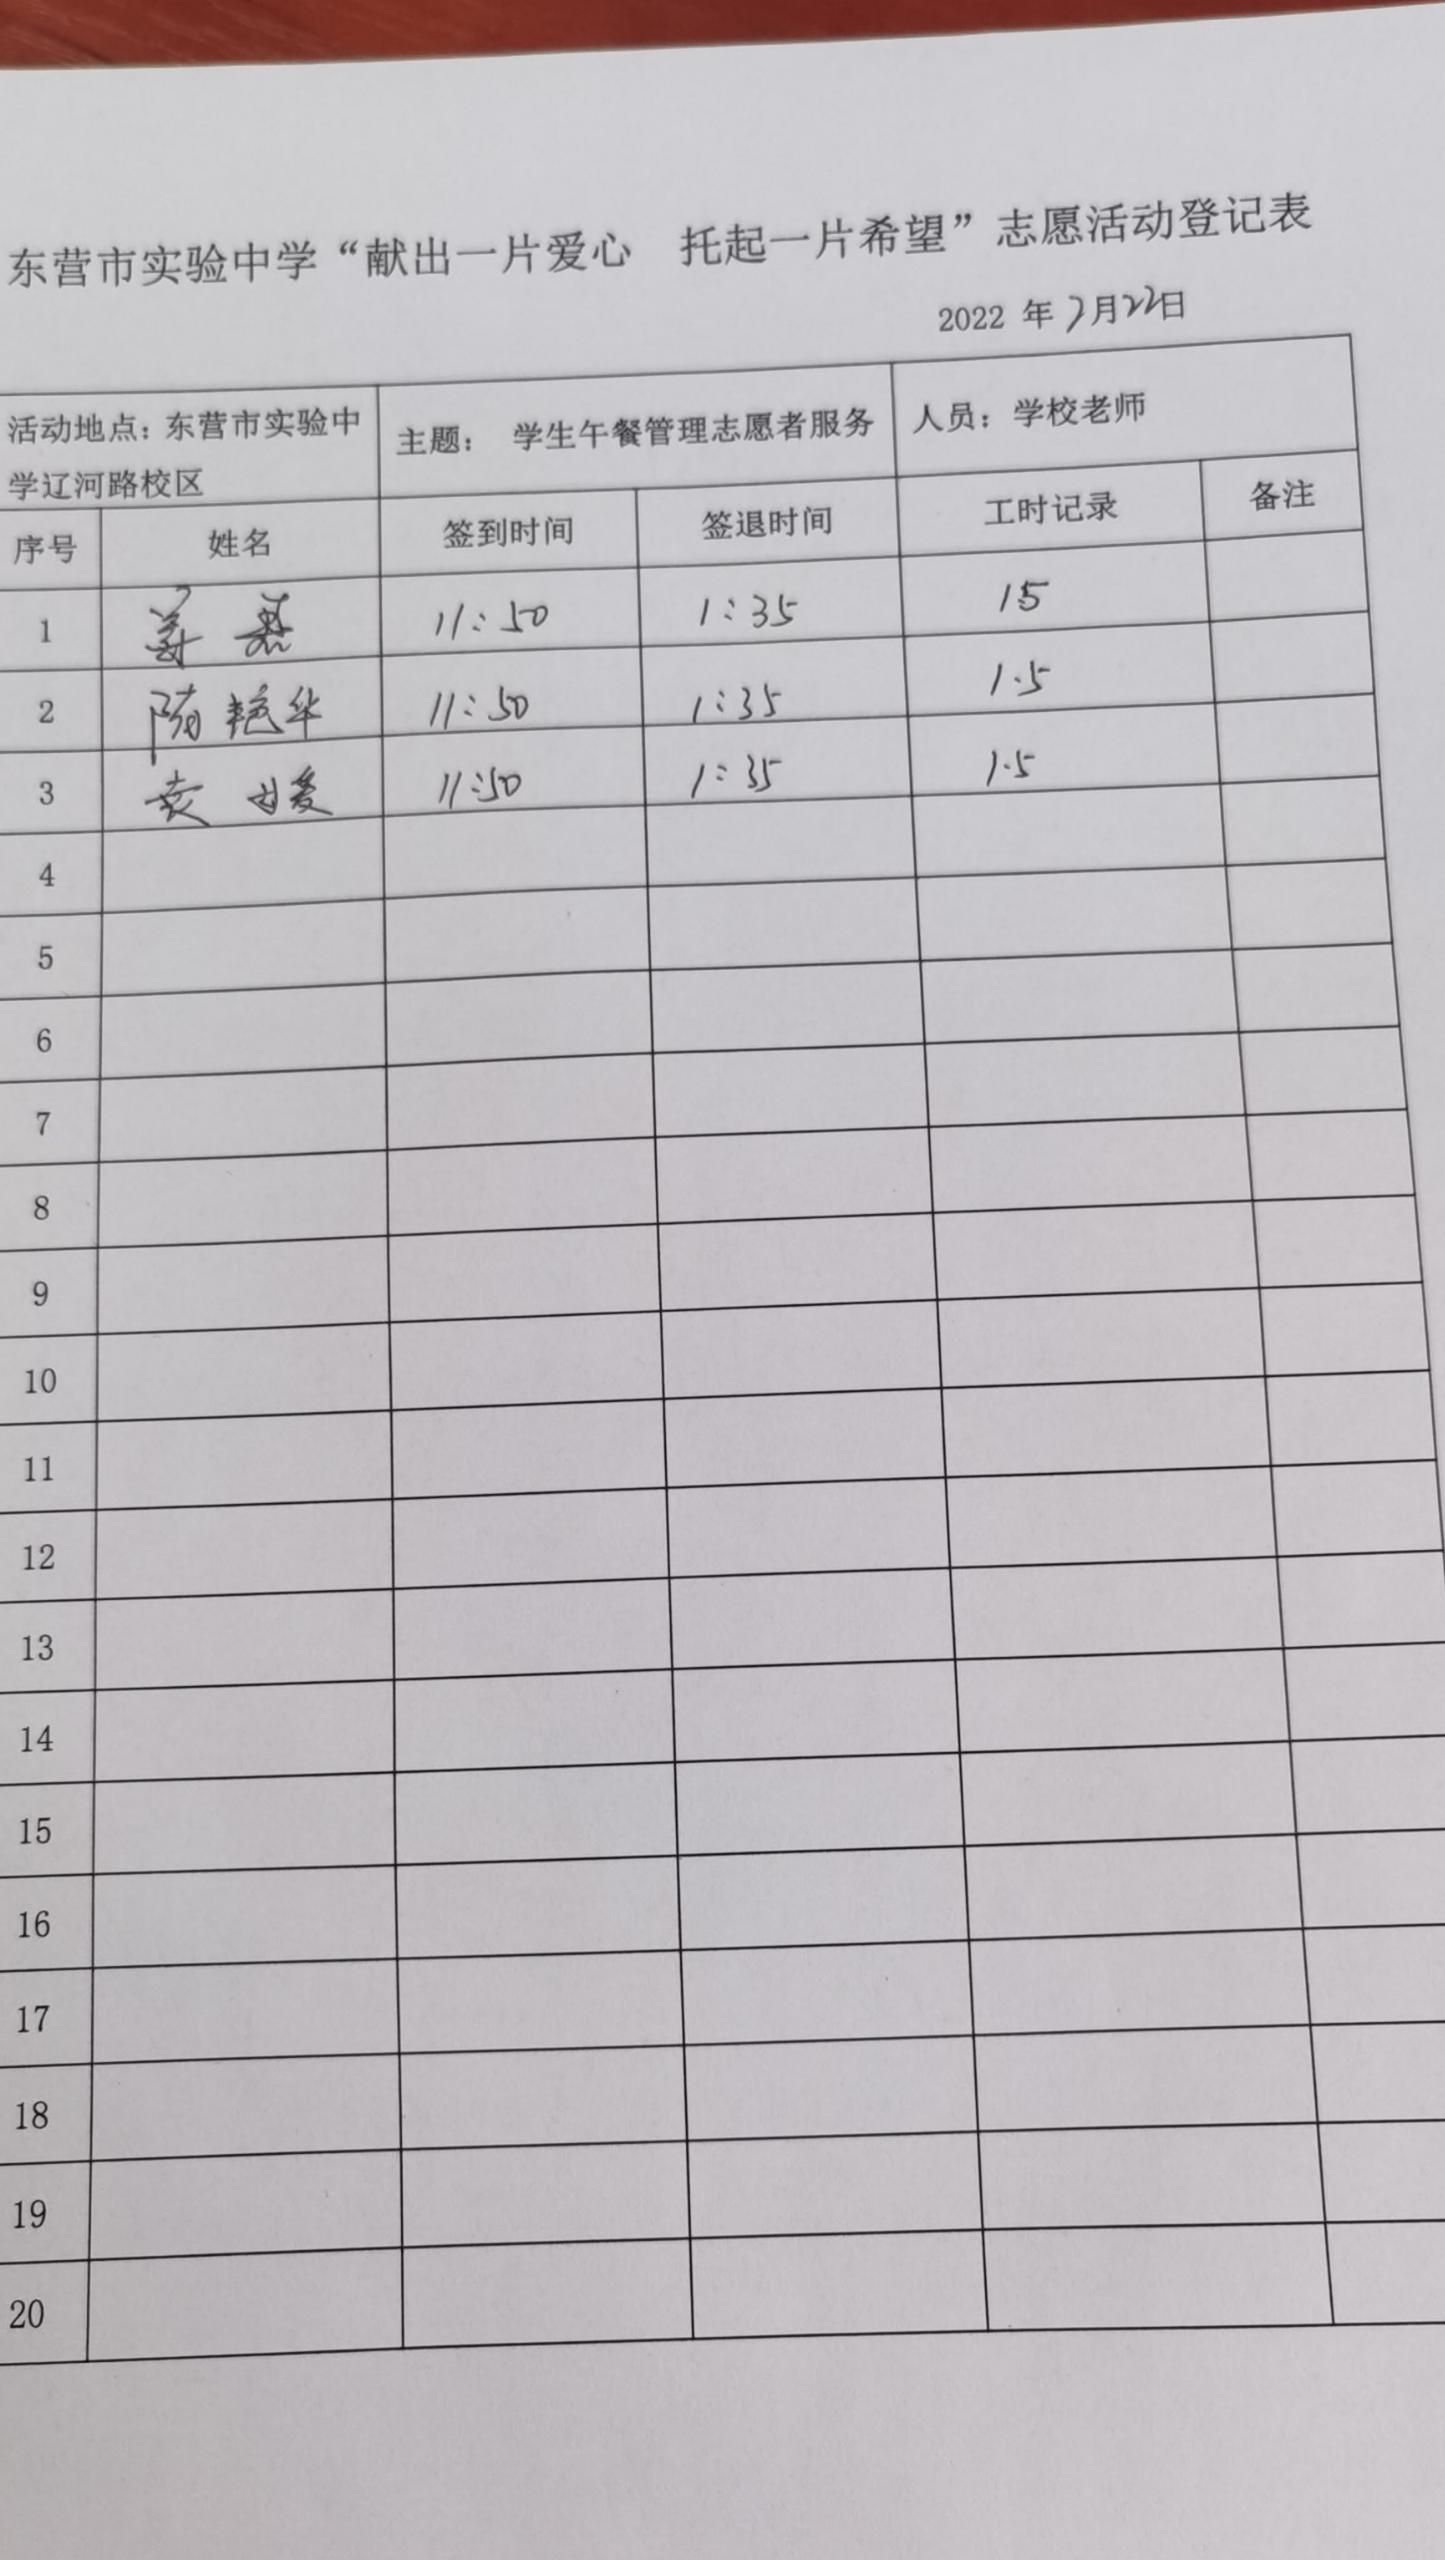 东营市实验中学“献出一片爱心 托起一片希望”志愿活动登记表
2022 年 7月22日
活动地点：东营市实验中学辽河路校区 主题： 学生午餐管理志愿者服务 人员：学校老师
序号 姓名 签到时间 签退时间 工时记录 备注
1 11:50 1:35 15
2 隋艳华 11:50 1:35 1.5
3 袁 11:50 1:35 1.5
4
5
6
7
8
9
10
11
12
13
14
15
16
17
18
19
20